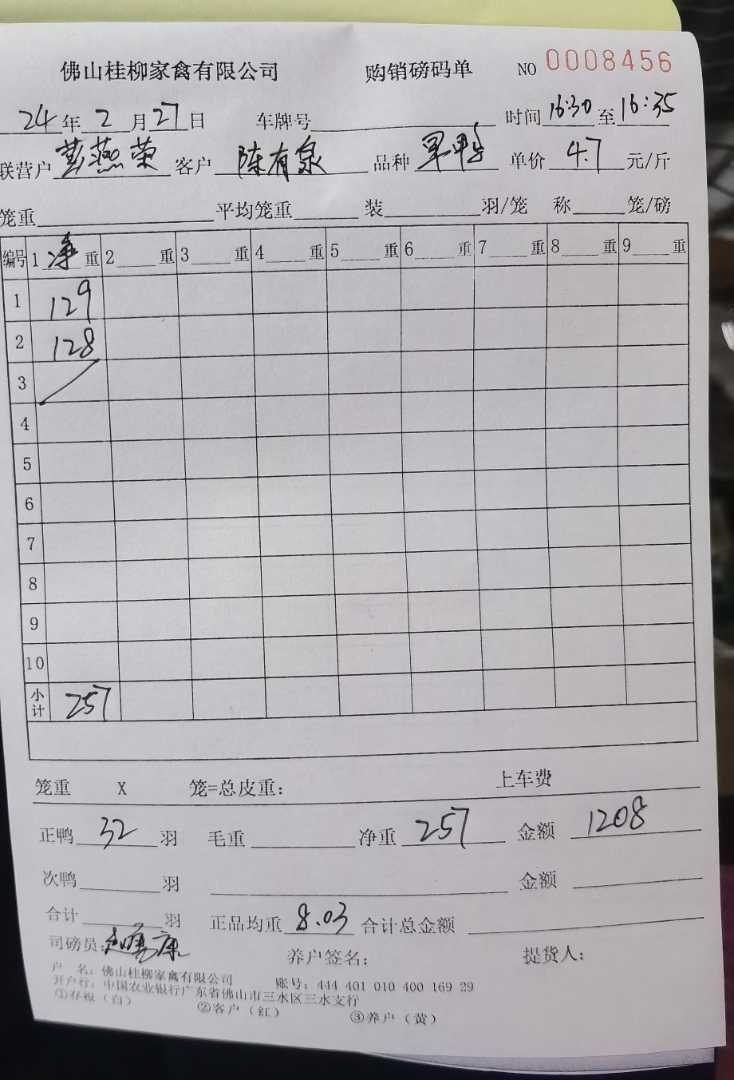 佛山桂柳家禽有限公司 购销磅码单 NO 0008456
24年2月27日 车牌号 时间16:30至16:35
联营户 彭燕荣 客户 陈有泉 品种 单价 4.7 元/斤
笼重 平均笼重 装 羽/笼 称 笼/磅
编号 1 净 重 2 重 3 重 4 重 5 重 6 重 7 重 8 重 9 重
1 129
2 128
3
4
5
6
7
8
9
10
小计 257
笼重 X 笼=总皮重: 上车费
正鸭 32 羽 毛重 净重 257 金额 1208
次鸭 羽 金额
合计 羽 正品均重 8.03 合计总金额
司磅员: 养户签名: 提货人:
户 名: 佛山桂柳家禽有限公司 账号: 444 401 010 400 169 29
开户行: 中国农业银行广东省佛山市三水区三水支行
①存根(白) ②客户(红) ③养户(黄)